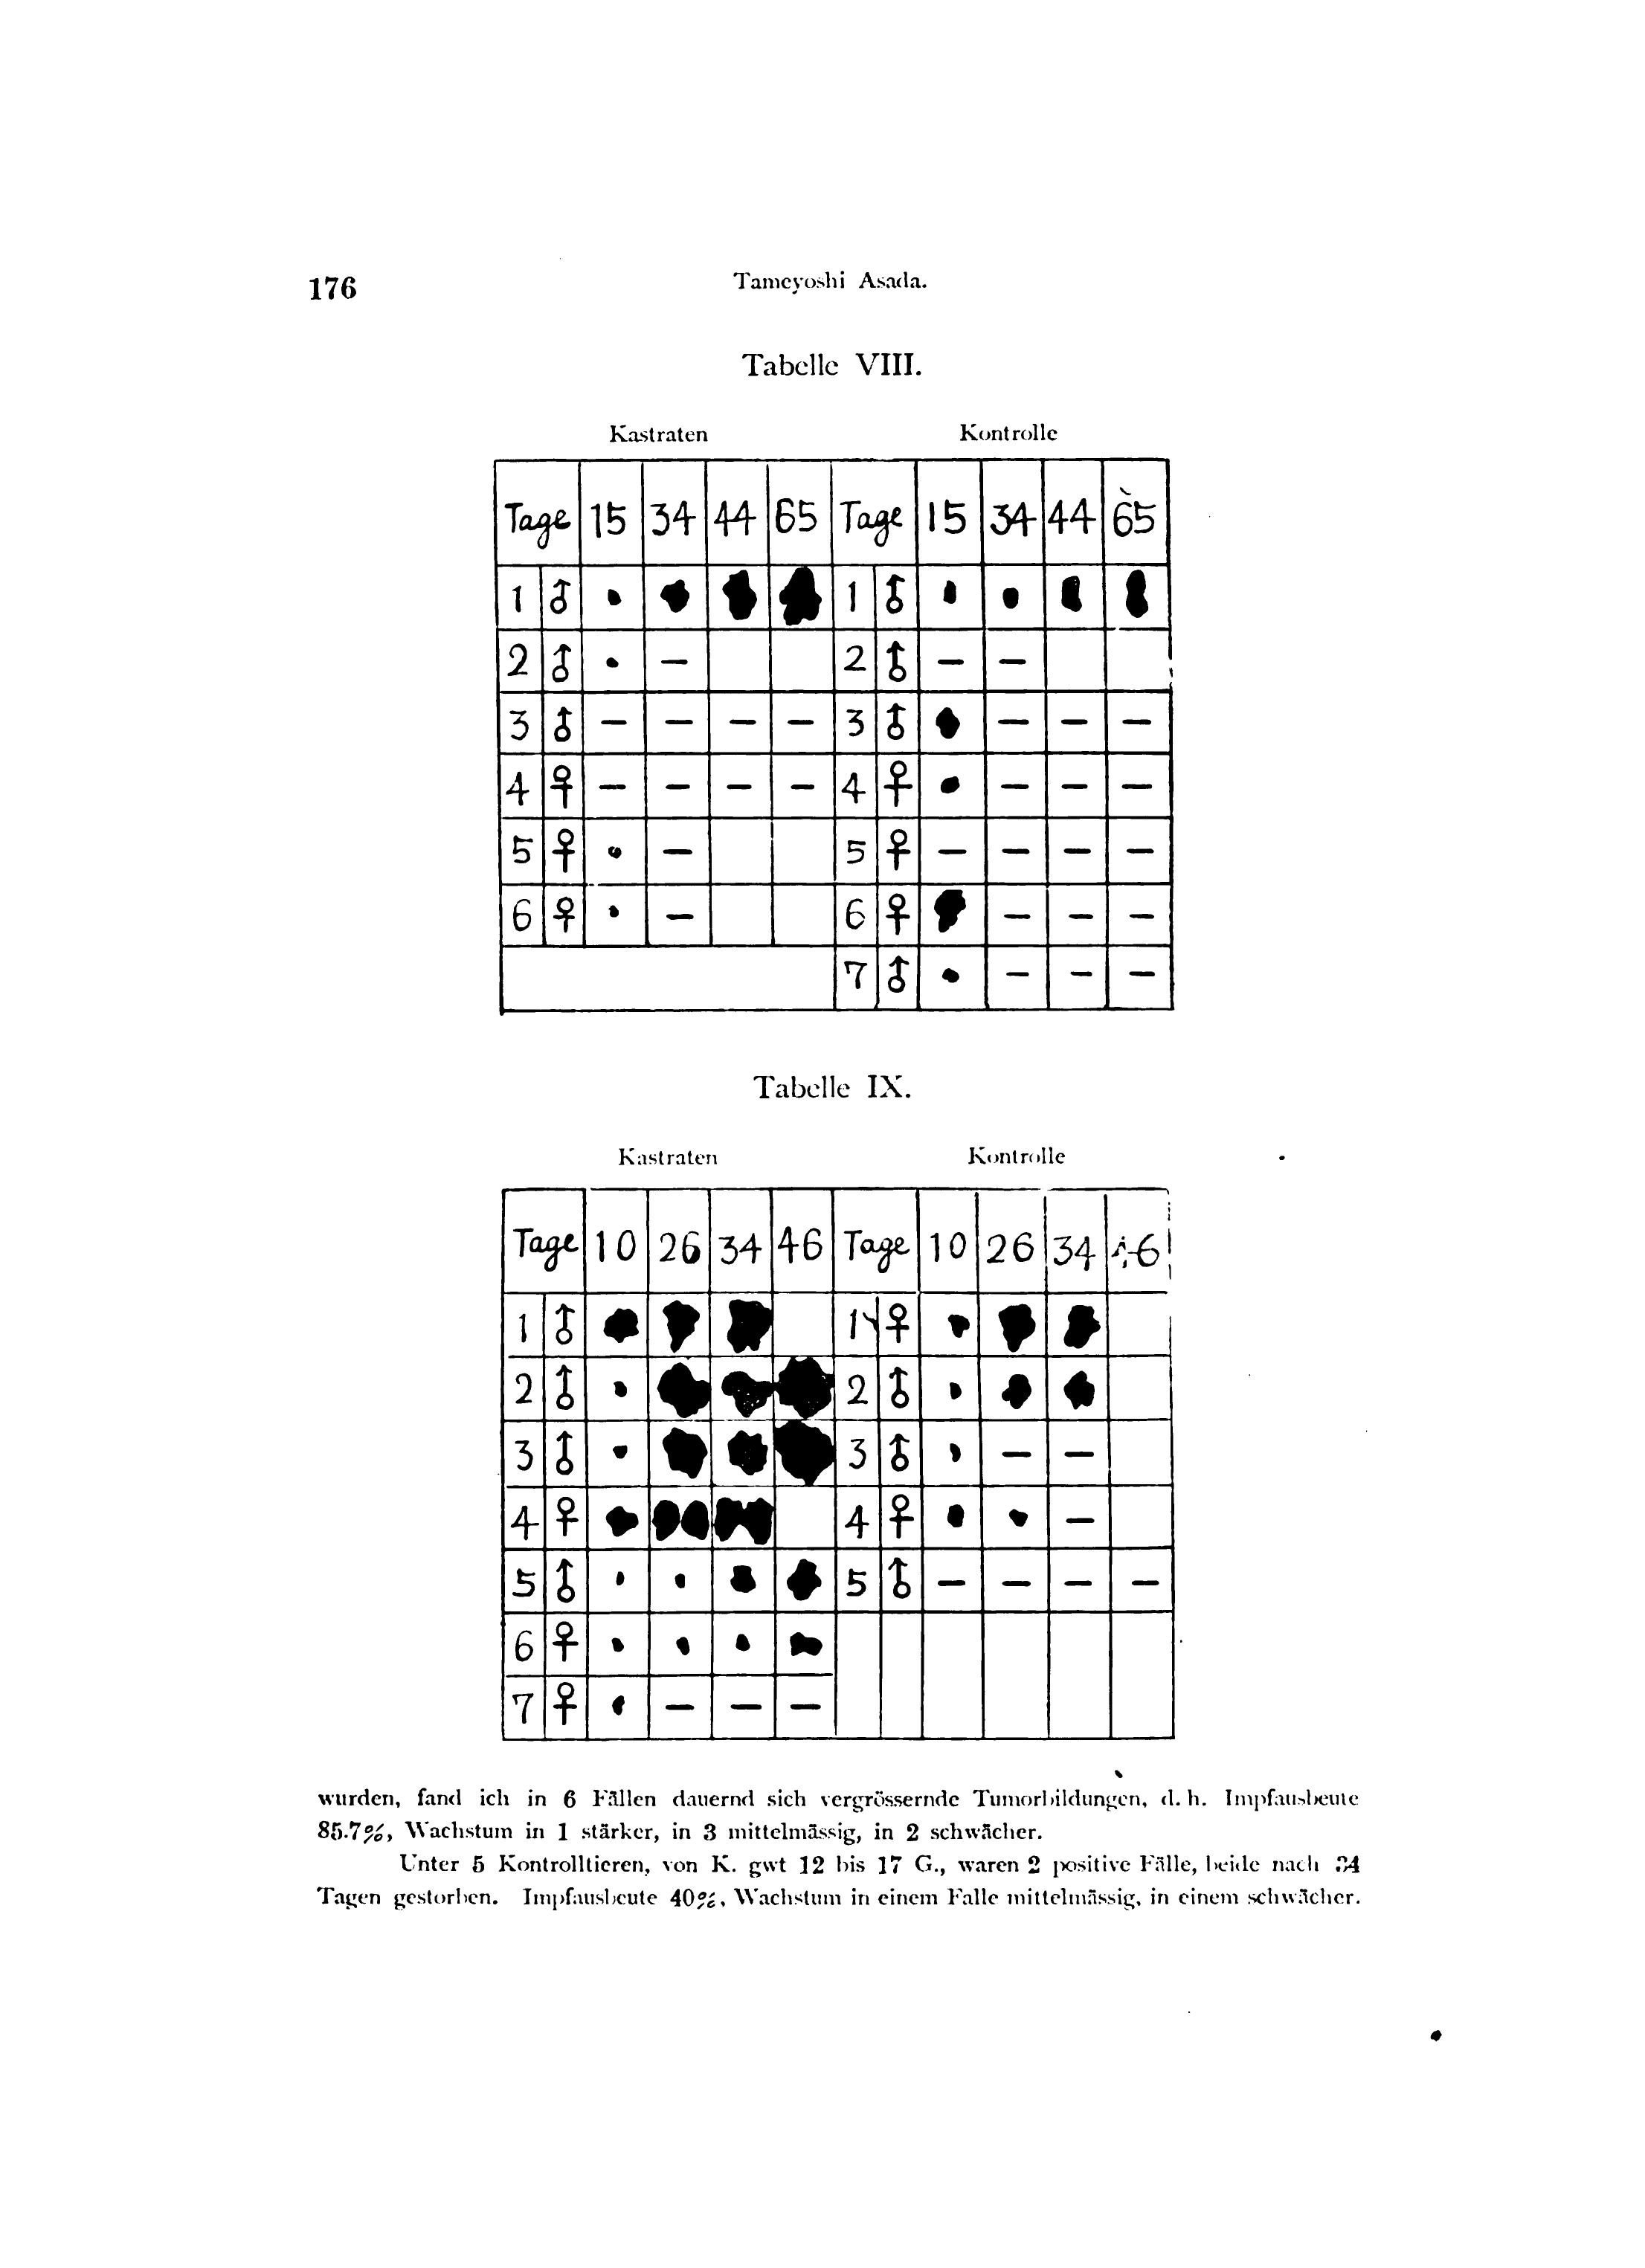 176
Tameyoshi Asada.
Tabelle VIII.
Kastraten Kontrolle
Tage 15 34 44 65 Tage 15 34 44 65
1 ♂ 1 ♂
2 ♂ — 2 ♂ — —
3 ♂ — — — — 3 ♂ — — —
4 ♀ — — — — 4 ♀ — — —
5 ♀ — 5 ♀ — — — —
6 ♀ — 6 ♀ — — —
7 ♂ — — —
Tabelle IX.
Kastraten Kontrolle
Tage 10 26 34 46 Tage 10 26 34 46
1 ♂ 1 ♀
2 ♂ 2 ♂
3 ♂ 3 ♂ — —
4 ♀ 4 ♀ —
5 ♂ 5 ♂ — — — —
6 ♀
7 ♀ — — —
wurden, fand ich in 6 Fällen dauernd sich vergrössernde Tumorbildungen, d. h. Impfausbeute
85.7%, Wachstum in 1 stärker, in 3 mittelmässig, in 2 schwächer.
Unter 5 Kontrolltieren, von K. gwt 12 bis 17 G., waren 2 positive Fälle, beide nach 34
Tagen gestorben. Impfausbeute 40%, Wachstum in einem Falle mittelmässig, in einem schwächer.